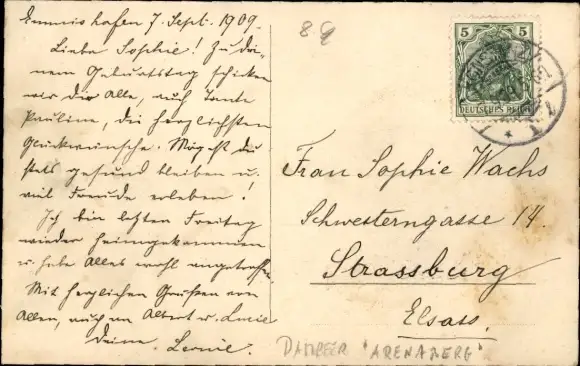 Emmishofen 7. Sept. 1909.
Liebe Sophie! Zu dei-
nem Geburtstag schicken
wir dir Alle, auch Tante
Pauline, die herzlichsten
Glückwünsche. Mögest du
stets gesund bleiben u.
viel Freude erleben!
Ich bin letzten Freitag
wieder heimgekommen
u. habe Alles wohl angetroffen.
Mit herzlichen Grüssen von
Allen, auch an Albert u. Lucie
deine
8 9
5 5
DEUTSCHES REICH
Frau Sophie Wachs
Schwesterngasse 14.
Strassburg
Elsass.
DAMPFER "ARENABERG"